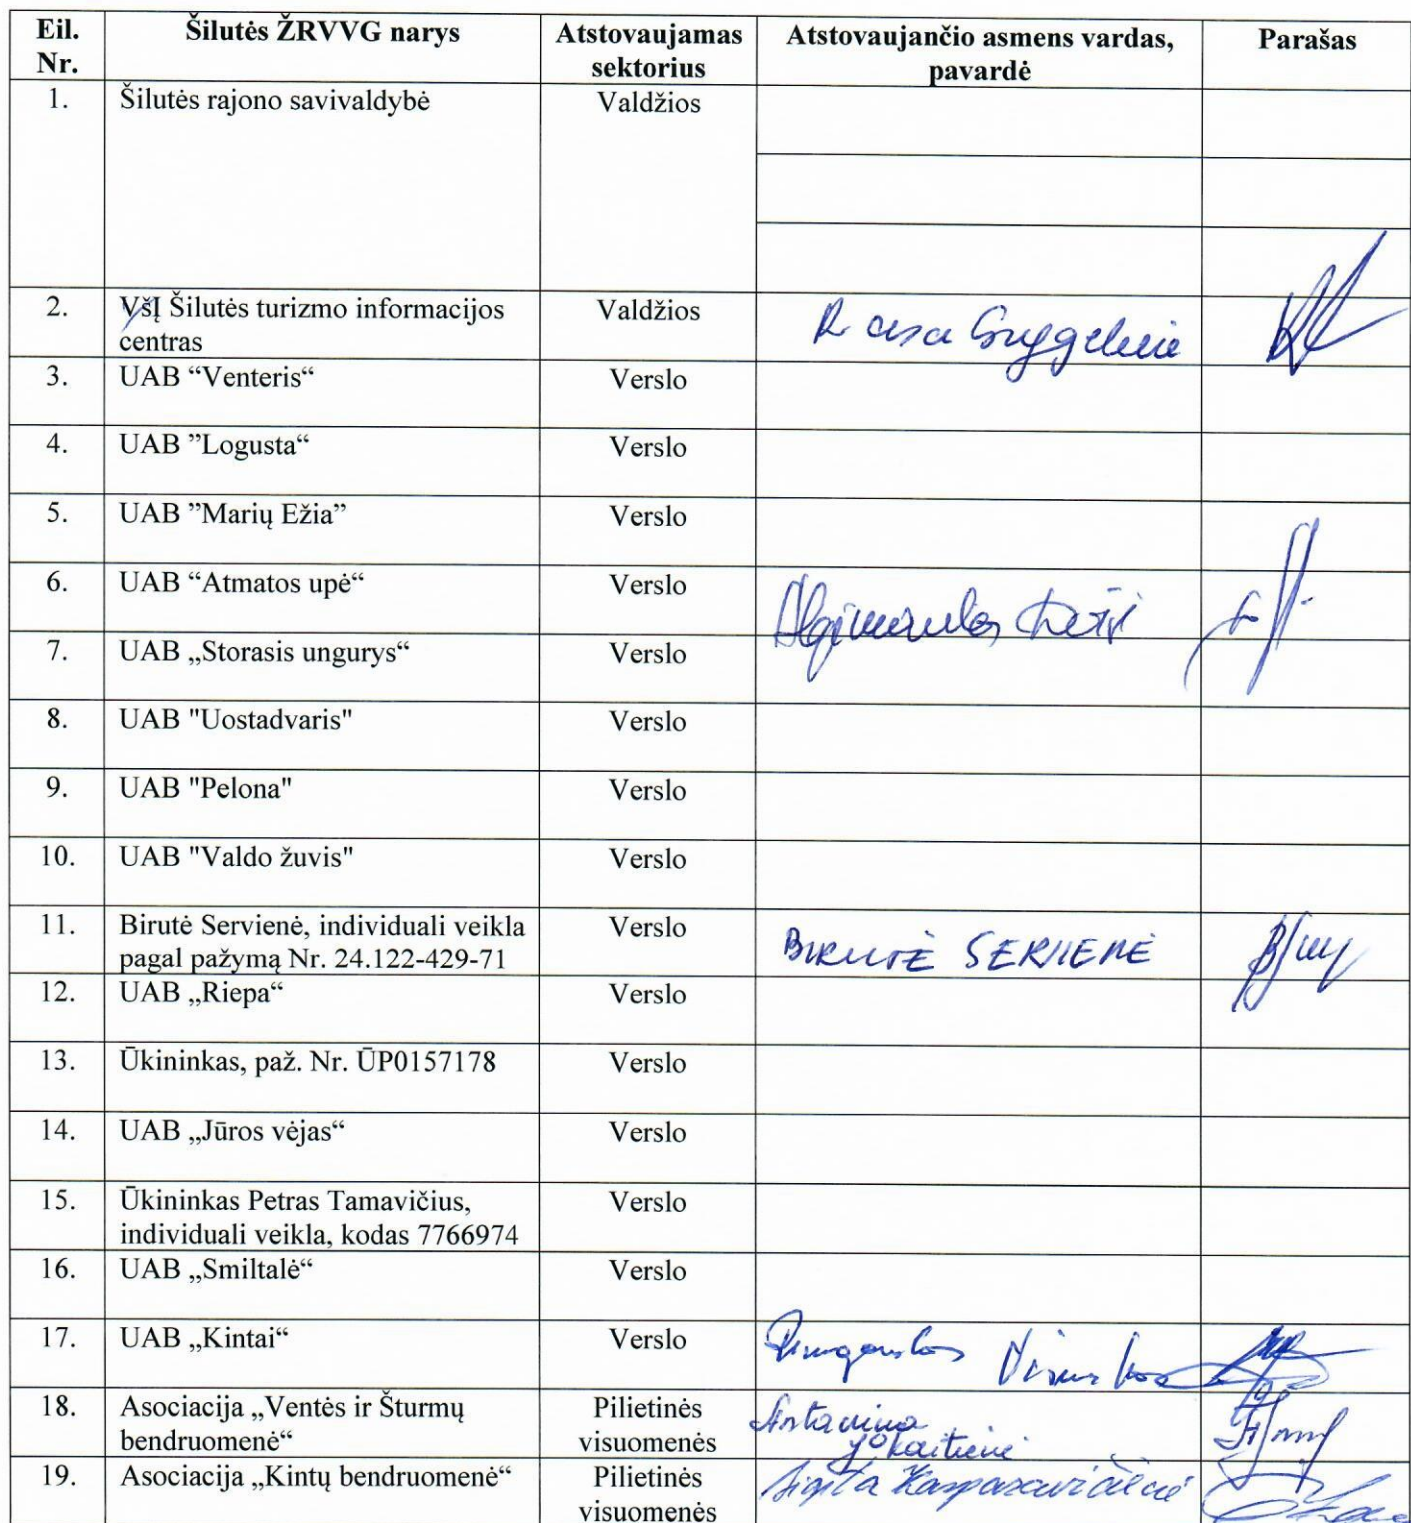 Eil. Nr. Šilutės ŽRVVG narys Atstovaujamas sektorius Atstovaujančio asmens vardas, pavardė Parašas
1. Šilutės rajono savivaldybė Valdžios
2. VšĮ Šilutės turizmo informacijos centras Valdžios
3. UAB “Venteris“ Verslo
4. UAB ”Logusta“ Verslo
5. UAB ”Marių Ežia” Verslo
6. UAB “Atmatos upė“ Verslo
7. UAB „Storasis ungurys“ Verslo
8. UAB "Uostadvaris" Verslo
9. UAB "Pelona" Verslo
10. UAB "Valdo žuvis" Verslo
11. Birutė Servienė, individuali veikla pagal pažymą Nr. 24.122-429-71 Verslo BIRUTĖ SERVIENĖ
12. UAB „Riepa“ Verslo
13. Ūkininkas, paž. Nr. ŪP0157178 Verslo
14. UAB „Jūros vėjas“ Verslo
15. Ūkininkas Petras Tamavičius, individuali veikla, kodas 7766974 Verslo
16. UAB „Smiltalė“ Verslo
17. UAB „Kintai“ Verslo
18. Asociacija „Ventės ir Šturmų bendruomenė“ Pilietinės visuomenės Antanina Jokaitienė
19. Asociacija „Kintų bendruomenė“ Pilietinės visuomenės Sigita Kasparavičienė